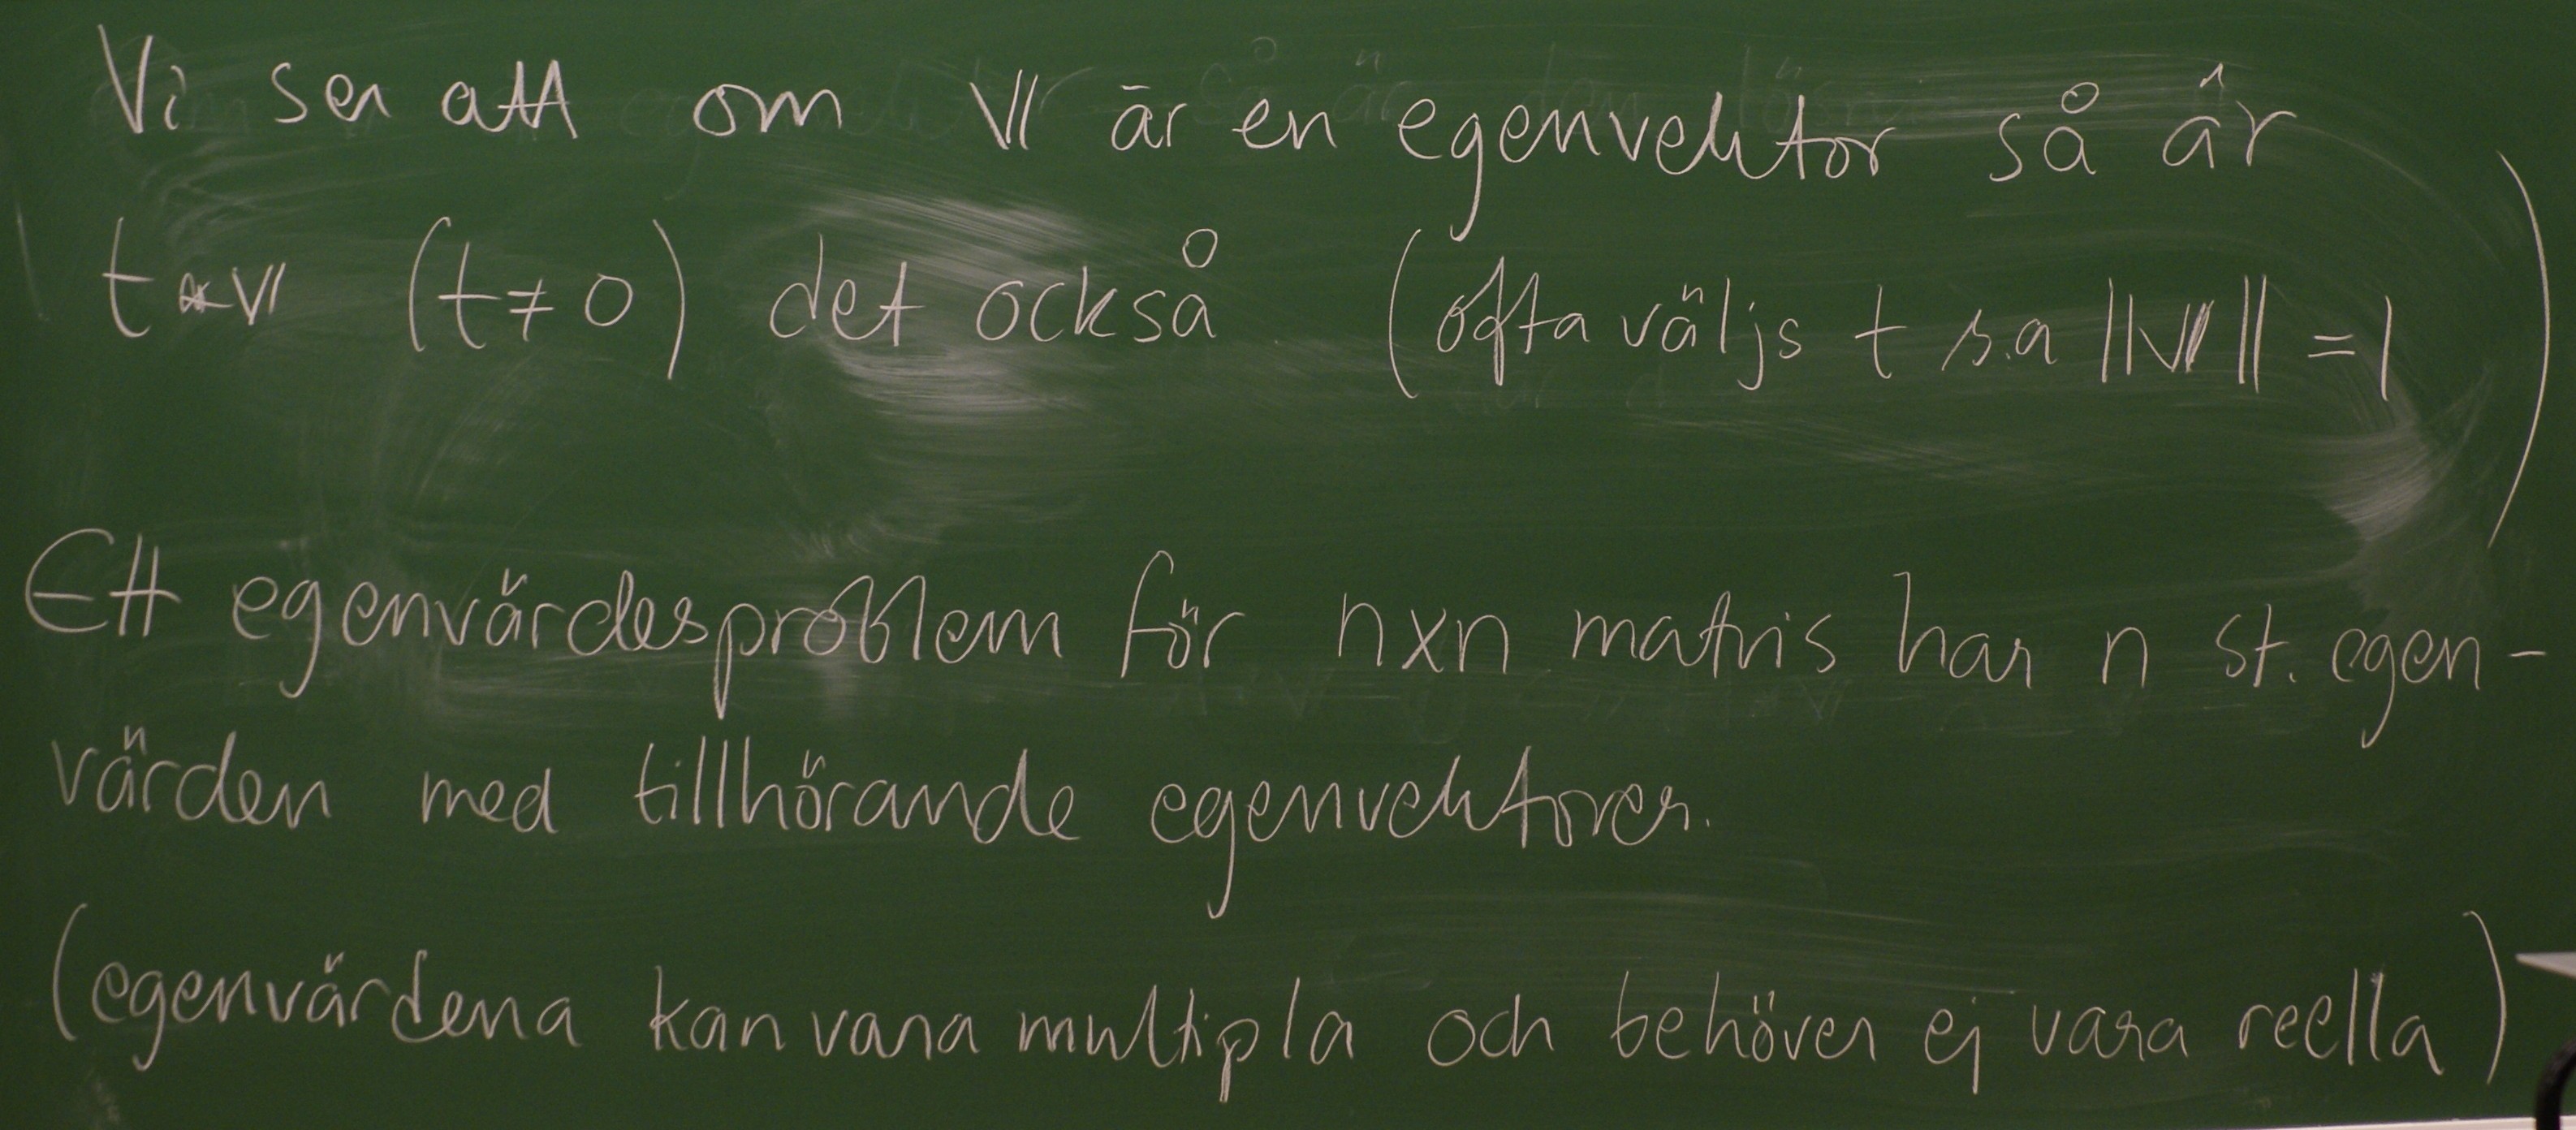 Vi ser att om v är en egenvektor så är
t v (t ≠ 0) det också (ofta väljs t s.a ||v|| = 1)
Ett egenvärdesproblem för n×n matris har n st. egen-
värden med tillhörande egenvektorer.
(egenvärdena kan vara multipla och behöver ej vara reella)